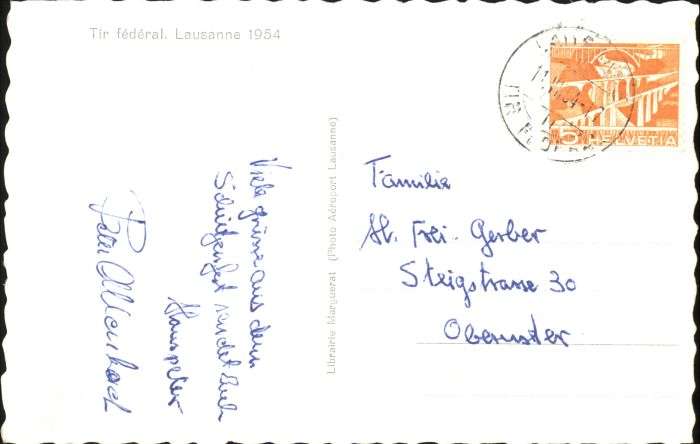 Tir fédéral. Lausanne 1954
5 HELVETIA
Familie
Frei - Gerber
Steigstrasse 30
Oberuster
Librairie Marguerat (Photo Aéroport Lausanne)
Viele grüsse aus dem
Schützenfest sendet Euch
Hanspeter
Peter